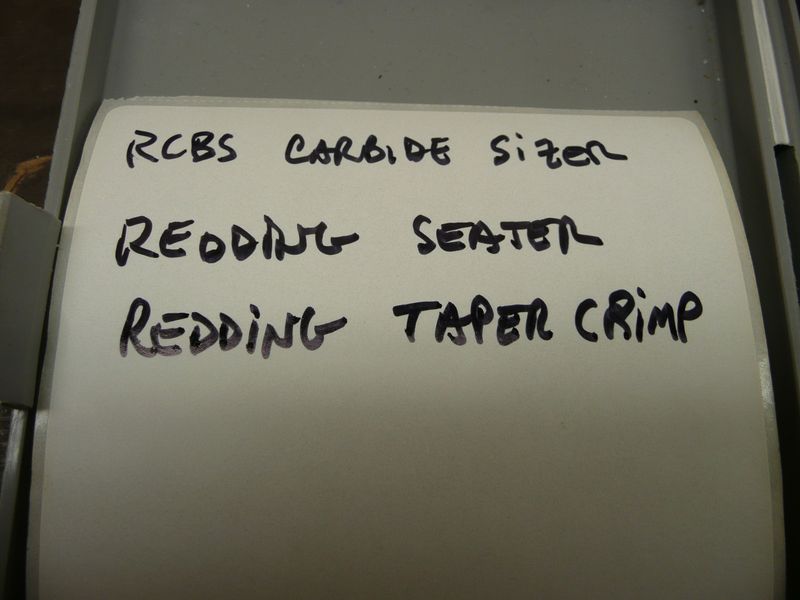 RCBS CARBIDE SiZER
REDDING SEATER
REDDiNG TAPER CRiMP